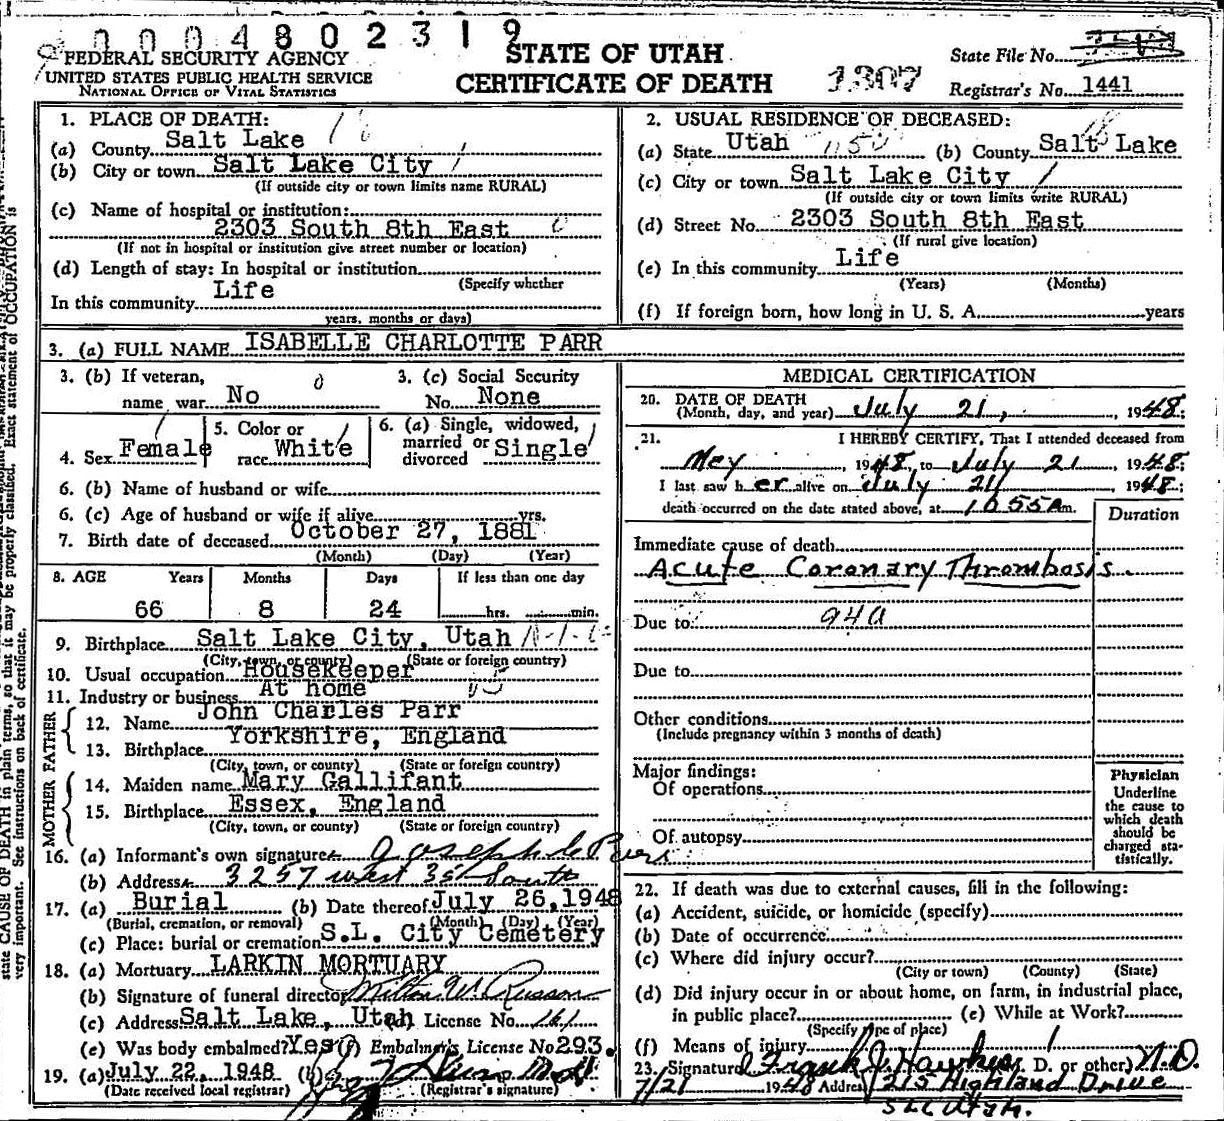 0004802319
FEDERAL SECURITY AGENCY
UNITED STATES PUBLIC HEALTH SERVICE
NATIONAL OFFICE OF VITAL STATISTICS
STATE OF UTAH
CERTIFICATE OF DEATH
1307
State File No.
Registrar's No. 1441
1. PLACE OF DEATH:
(a) County Salt Lake
(b) City or town Salt Lake City
(If outside city or town limits name RURAL)
(c) Name of hospital or institution:
2303 South 8th East
(If not in hospital or institution give street number or location)
(d) Length of stay: In hospital or institution
(Specify whether
In this community Life
years, months or days)
2. USUAL RESIDENCE OF DECEASED:
(a) State Utah (b) County Salt Lake
(c) City or town Salt Lake City
(If outside city or town limits write RURAL)
(d) Street No. 2303 South 8th East
(If rural give location)
(e) In this community Life
(Years) (Months)
(f) If foreign born, how long in U. S. A. years
3. (a) FULL NAME ISABELLE CHARLOTTE PARR
3. (b) If veteran, name war No
3. (c) Social Security No. None
4. Sex Female
5. Color or race White
6. (a) Single, widowed, married or divorced Single
6. (b) Name of husband or wife
6. (c) Age of husband or wife if alive yrs.
7. Birth date of deceased October 27, 1881
(Month) (Day) (Year)
8. AGE Years Months Days If less than one day
66 8 24 hrs. min.
9. Birthplace Salt Lake City, Utah
(City, town, or county) (State or foreign country)
10. Usual occupation Housekeeper
11. Industry or business At home
FATHER
12. Name John Charles Parr
13. Birthplace Yorkshire, England
(City, town, or county) (State or foreign country)
MOTHER
14. Maiden name Mary Gallifant
15. Birthplace Essex, England
(City, town, or county) (State or foreign country)
16. (a) Informant's own signature
(b) Address 3257 west 35 South
17. (a) Burial (b) Date thereof July 26, 1948
(Burial, cremation, or removal) (Month) (Day) (Year)
(c) Place: burial or cremation S.L. City Cemetery
18. (a) Mortuary LARKIN MORTUARY
(b) Signature of funeral director
(c) Address Salt Lake, Utah (d) License No. 161
(e) Was body embalmed? Yes (f) Embalmer's License No 293.
19. (a) July 22, 1948 (b)
(Date received local registrar) (Registrar's signature)
MEDICAL CERTIFICATION
20. DATE OF DEATH
(Month, day, and year) July 21, , 1948;
21. I HEREBY CERTIFY, That I attended deceased from
May , 1948, to July 21 1948;
I last saw her alive on July 21 1948;
death occurred on the date stated above, at 10 55 A m.
Duration
Immediate cause of death
Acute Coronary Thrombosis.
Due to 94a
Due to
Other conditions
(Include pregnancy within 3 months of death)
Major findings:
Of operations
Of autopsy
Physician
Underline the cause to which death should be charged statistically.
22. If death was due to external causes, fill in the following:
(a) Accident, suicide, or homicide (specify)
(b) Date of occurrence
(c) Where did injury occur?
(City or town) (County) (State)
(d) Did injury occur in or about home, on farm, in industrial place,
in public place? (e) While at Work?
(Specify type of place)
(f) Means of injury
23. Signature Frank J. D. or other)
7/21 1948 Address 215 Highland Drive
SLC Utah.
state CAUSE OF DEATH in plain terms, so that it may be properly classified. Exact statement of OCCUPATION is
very important. See Instructions on back of certificate.